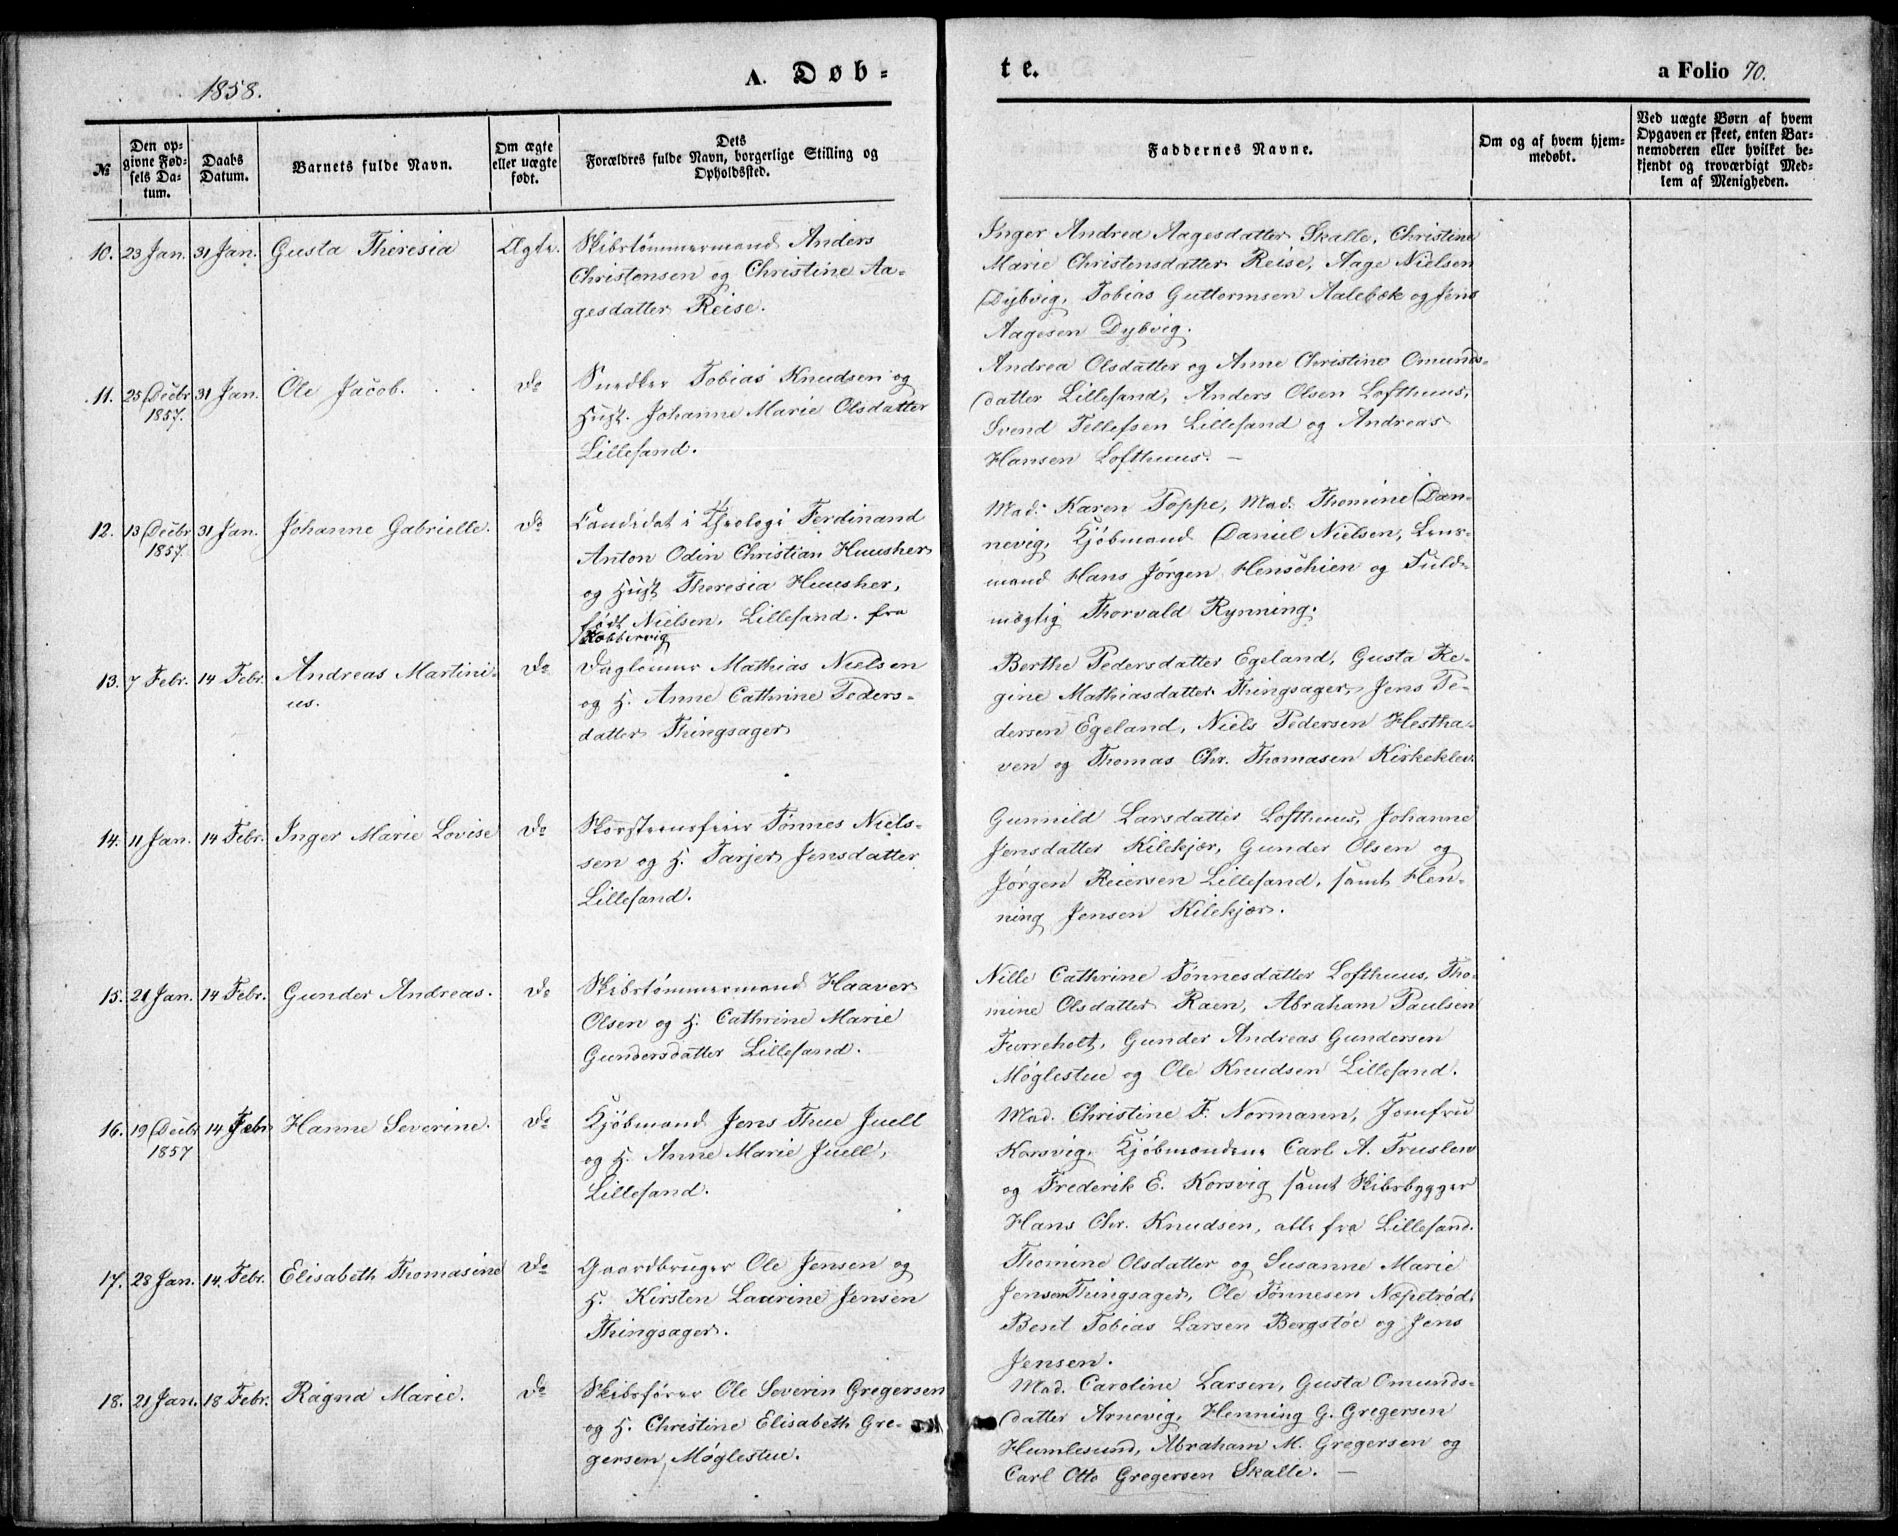 1858.
A. Døb-
te.
a Folio 70.
№
Den op-
givne Fød-
sels Da-
tum.
Daabs
Datum.
Barnets fulde Navn.
Om ægte
eller uægte
født.
Dets
Forældres fulde Navn, borgerlige Stilling og
Opholdssted.
Faddernes Navne.
Om og af hvem hjem-
medøbt.
Ved uægte Børn af hvem
Opgaven er skeet, enten Bar-
nemoderen eller hvilket be-
kjendt og troværdigt Med-
lem af Menigheden.
10. 23 Jan. 31 Jan. Gusta Theresia Ægte.
Skibstømmermand Anders
Christensen og Christine Aa-
gesdatter Reise.
Inger Andrea Aagesdatter Skalle, Christine
Marie Christensdatter Reise, Aage Nielsen
Dybvig, Tobias Guttormsen Aalebæk og Jens
Aagesen Dybvig.
11. 25 Decbr 1857. 31 Jan. Ole Jacob. Do
Snedker Tobias Knudsen og
Hust. Johanne Marie Olsdatter
Lillesand.
Andrea Olsdatter og Anne Christine Omunds-
datter Lillesand, Anders Olsen Lofthuus,
Svend Tellefsen Lillesand og Andreas
Hansen Lofthuus. —
12. 13 Decbr 1857. 31 Jan. Johanne Gabrielle. Do
Candidat i Theologi Ferdinand
Anton Odin Christian Huusher
og Hust Theresia Huusher,
født Nielsen, Lillesand. fra
Kobbervig
Mad. Karen Poppe, Mad. Thomine Dan-
nevig, Kjøbmand Daniel Nielsen, Lens-
mand Hans Jørgen Henschien og Fuld-
mægtig Thorvald Rynning.
13. 7 Febr. 14 Febr. Andreas Martini-
us. Do
Daglønner Mathias Nielsen
og H. Anne Cathrine Peders-
datter Thingsager
Berthe Pedersdatter Egeland, Gusta Re-
gine Mathiasdatter Thingsager, Jens Pe-
dersen Egeland, Niels Pedersen Hestha-
ven og Thomas Chr. Thomasen Kirkeklev.
14. 11 Jan. 14 Febr. Inger Marie Lovise Do
Skorsteensfeier Tønnes Niel-
sen og H. Tarjer Jensdatter
Lillesand.
Gunnild Larsdatter Lofthuus, Johanne
Jensdatter Kilekjær, Gunder Olsen og
Jørgen Reiersen Lillesand, samt Hen-
ning Jensen Kilekjær.
15. 21 Jan. 14 Febr. Gunder Andreas. Do
Skibstømmermand Haaver
Olsen og H. Cathrine Marie
Gundersdatter Lillesand.
Nille Cathrine Tønnesdatter Lofthuus, Tho-
mine Olsdatter Raen, Abraham Paulsen
Furreholt, Gunder Andreas Gundersen
Møglestue og Ole Knudsen Lillesand.
16. 19 Decbr 1857 14 Febr Hanne Severine. Do
Kjøbmand Jens Thue Juell
og H. Anne Marie Juell,
Lillesand.
Mad. Christine F. Normann, Jomfru
Korsvig, Kjøbmændene Carl A. Truslew
og Frederik E. Korsvig samt Skibsbygger
Hans Chr. Knudsen, alle fra Lillesand.
17. 28 Jan. 14. Febr. Elisabeth Thomasine Do
Gaardbruger Ole Jensen og
H. Kirsten Laurine Jensen
Thingsager.
Thomine Olsdatter og Susanne Marie
Jensen Thingsager, Ole Tønnesen Næpetrød,
Bent Tobias Larsen Bergstøe og Jens
Jensen.
18. 21 Jan. 18 Febr. Ragna Marie. Do
Skibsfører Ole Severin Gregersen
og H. Christine Elisabeth Gre-
gersen, Møglestue.
Mad. Caroline Larsen, Gusta Omunds-
datter Arnevig, Henning G. Gregersen
Humlesund, Abraham M. Gregersen og
Carl Otto Gregersen Skalle. —